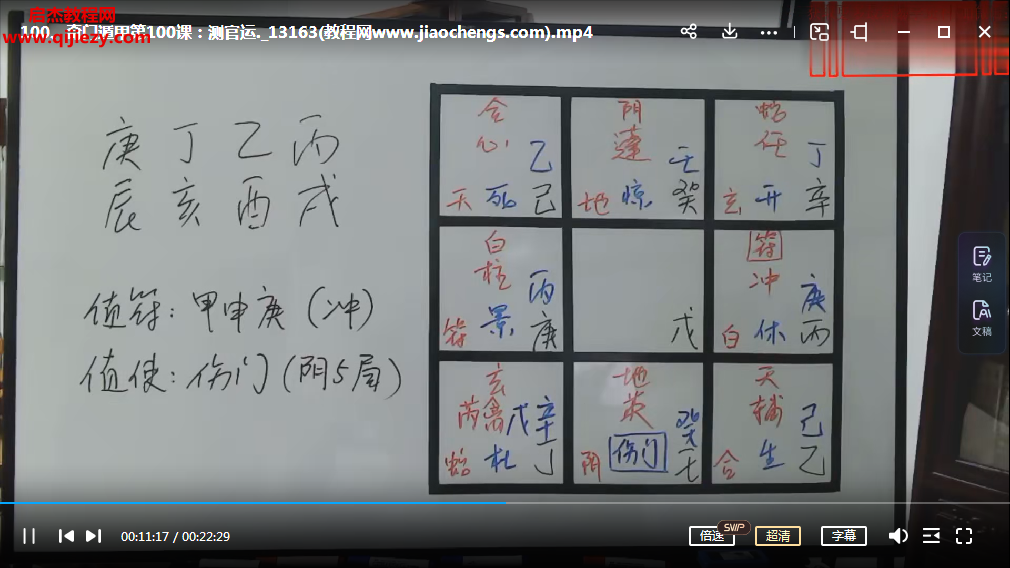 启杰教程网
www.qijiezy.com
100、奇门遁甲第100课:测官运._13163(教程网www.jiaochengs.com).mp4
庚 丁 乙 丙
辰 亥 酉 戌
值符:甲申庚(冲)
值使:伤门(阴5局)
合
心 乙
天 死 己
阴
蓬 壬
地 惊 癸
蛇
任 丁
玄 开 辛
白
柱 丙
符 景 庚
戊
符
冲 庚
白 休 丙
玄
芮禽 戊辛
蛇 杜 丁
地
英 癸
阴 伤门 壬
天
辅 己
合 生 乙
笔记
文稿
00:11:17 / 00:22:29
倍速
SVIP
超清
字幕